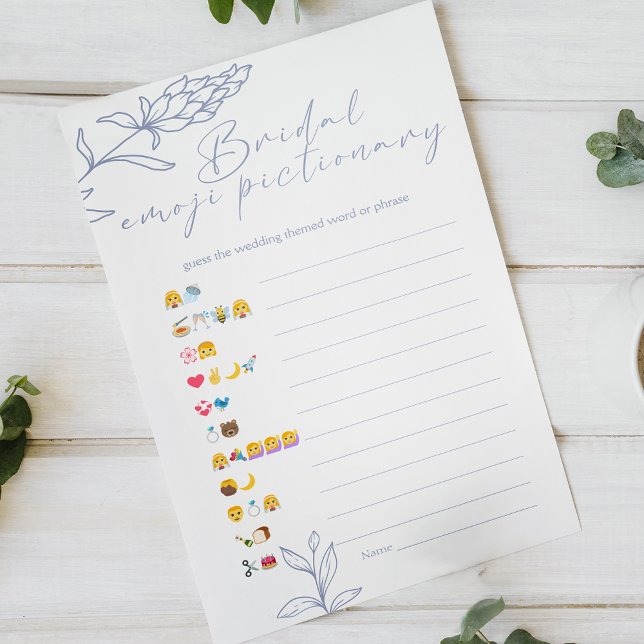 Bridal
emoji pictionary
guess the wedding themed word or phrase
Name